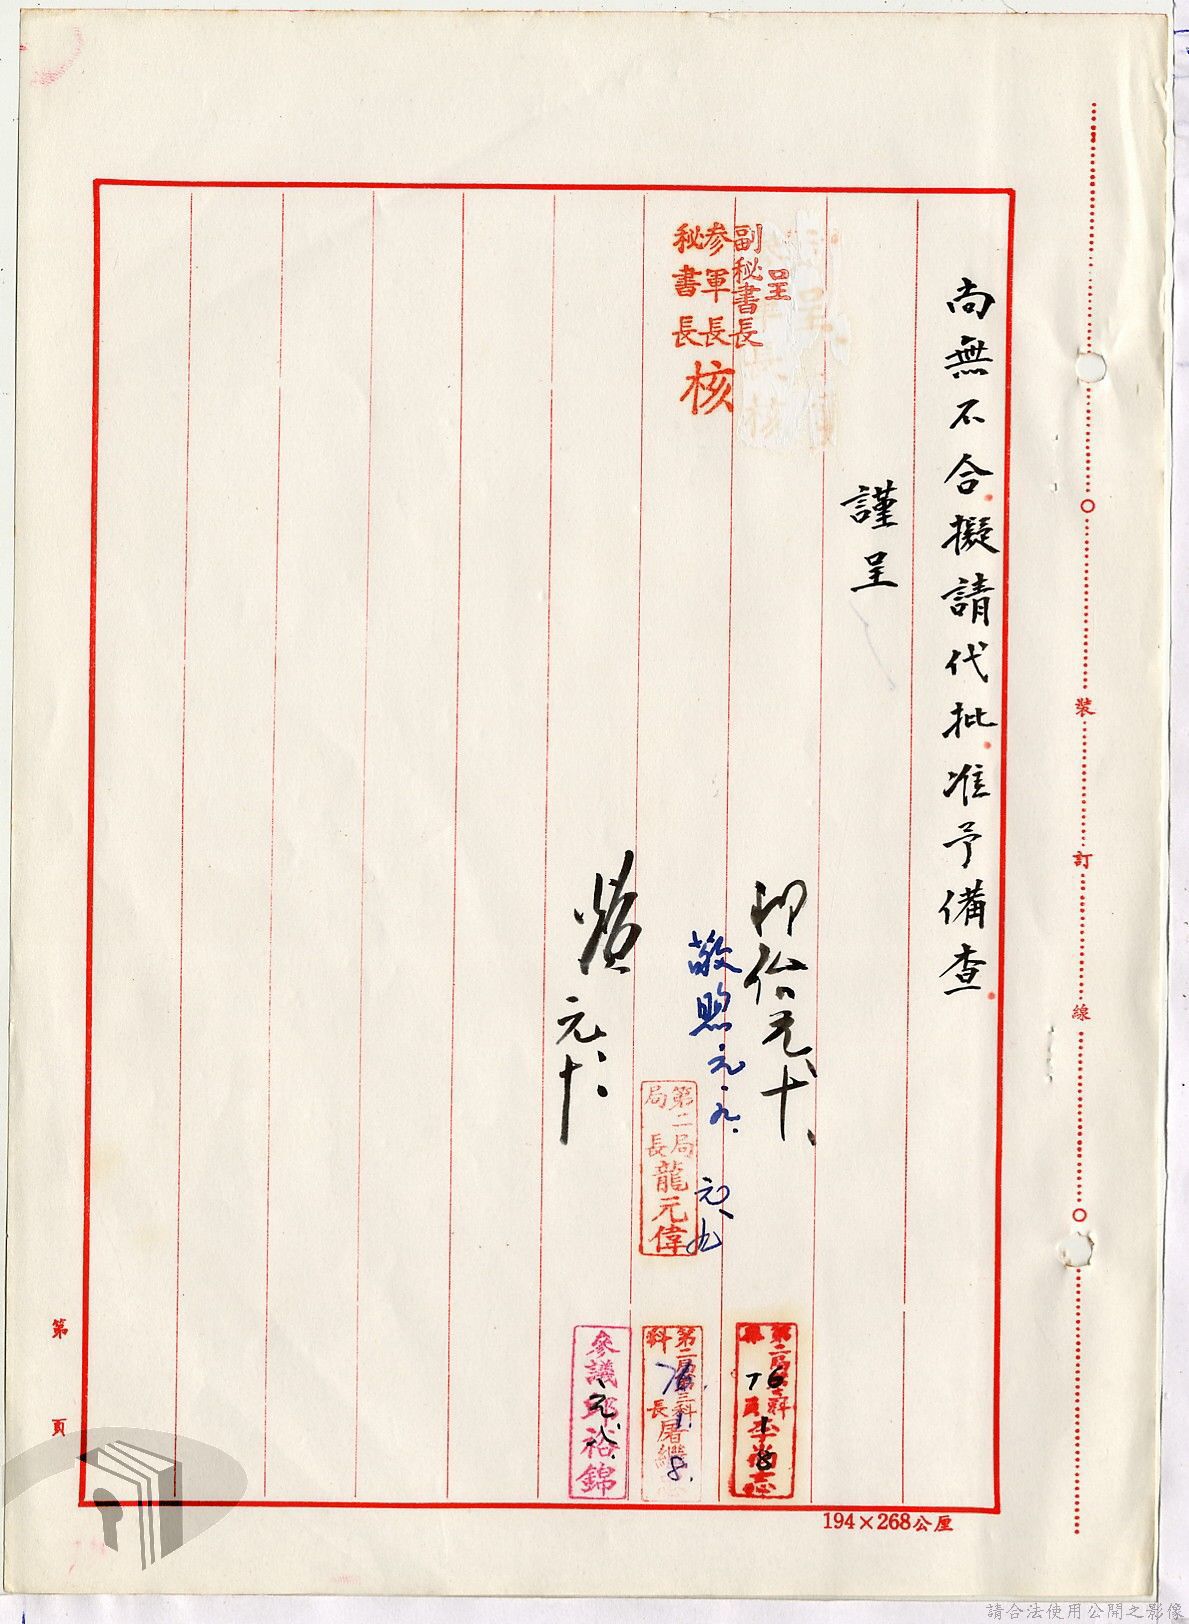 尚無不合擬請代批准予備查
謹呈
呈
副秘書長
參軍長
秘書長
核
敬煦元.九.
元、九
元十
第二局
局長龍元偉
第二局第三科
76
1
8
李尚志
第二局第三科
科長屠繼
76.
1.
8.
參議邱裕錦
元八
裝
訂
線
第
頁
194×268公厘
請合法使用公開之影像